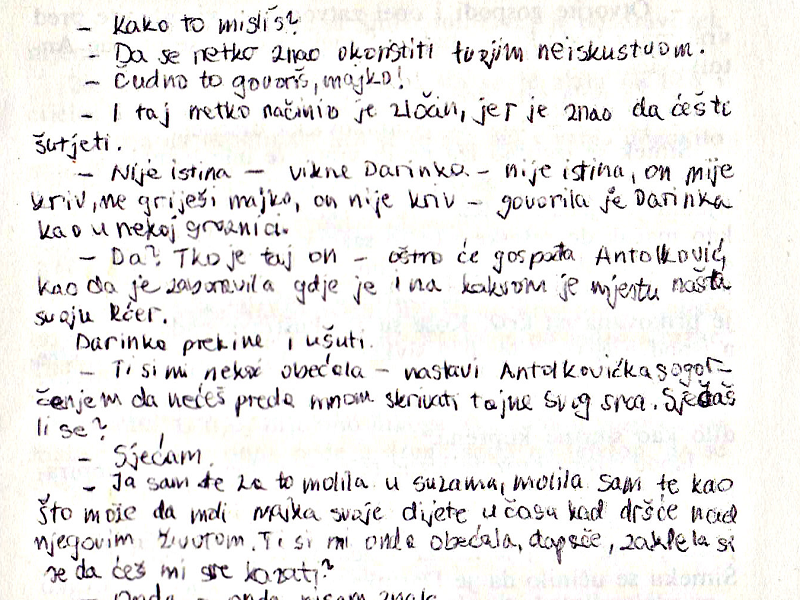 - Kako to misliš?
- Da se netko znao okoristiti tuđim neiskustvom.
- Čudno to govoriš, majko!
- I taj netko načinio je zločin, jer je znao da ćeš ti
šutjeti.
- Nije istina - vikne Darinka - nije istina, on nije
kriv, ne griješi majko, on nije kriv - govorila je Darinka
kao u nekoj groznici.
- Da? Tko je taj on - oštro će gospođa Antolković,
kao da je zaboravila gdje je i na kakvom je mjestu našla
svoju kćer.
Darinka prekine i ušuti.
- Ti si mi nekoć obećala - nastavi Antolkovićka s ogor-
čenjem da nećeš preda mnom skrivati tajne svog srca. Sjećaš
li se?
- Sjećam.
- Ja sam te za to molila u suzama, molila sam te kao
što može da moli majka svoje dijete u času kad dršće nad
njegovim životom. Ti si mi onda obećala, dapače, zaklela si
se da ćeš mi sve kazati?
- Onda - onda nisam znala